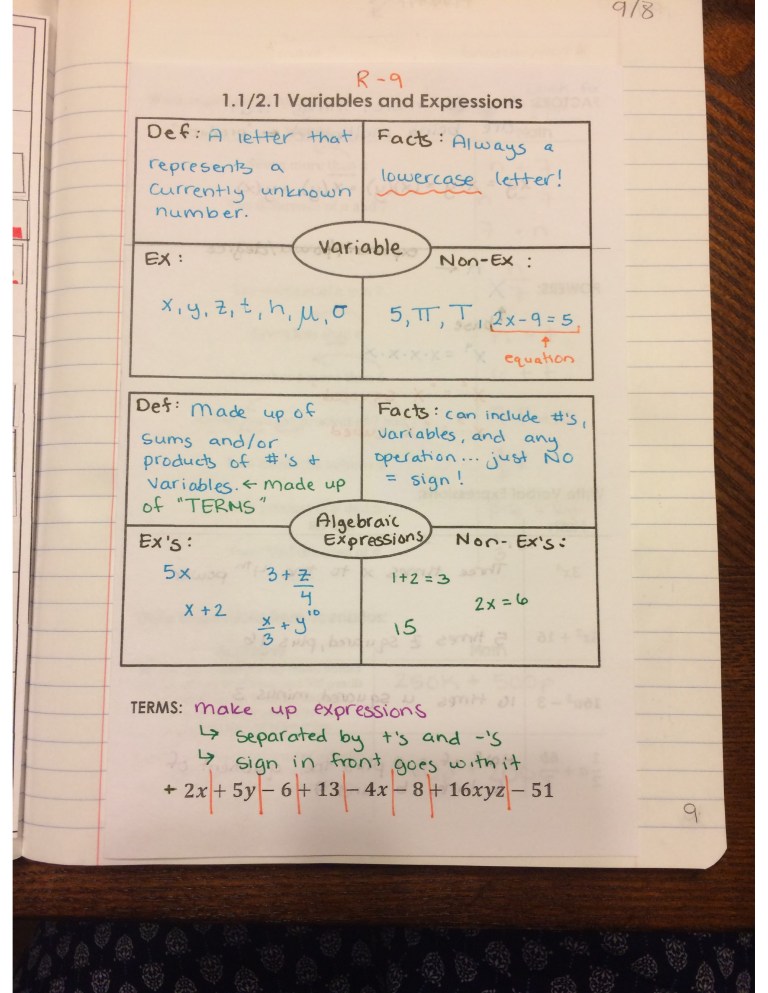 9/8
R-9
1.1/2.1 Variables and Expressions
Def: A letter that
represents a
currently unknown
number.
Facts: Always a
lowercase letter!
Variable
Ex:
x, y, z, t, h, μ, σ
Non-Ex:
5, π, T, 2x-9=5
↑
equation
Def: Made up of
sums and/or
products of #'s +
variables. ← made up
of "TERMS"
Facts: can include #'s,
variables, and any
operation... just NO
= sign!
Algebraic
Expressions
Ex's:
5x 3+z/4
x+2 x/3+y¹⁰
Non-Ex's:
1+2=3
2x=6
15
TERMS: make up expressions
↳ separated by +'s and -'s
↳ sign in front goes with it
+ 2x|+ 5y|− 6|+ 13|− 4x|− 8|+ 16xyz|− 51
9